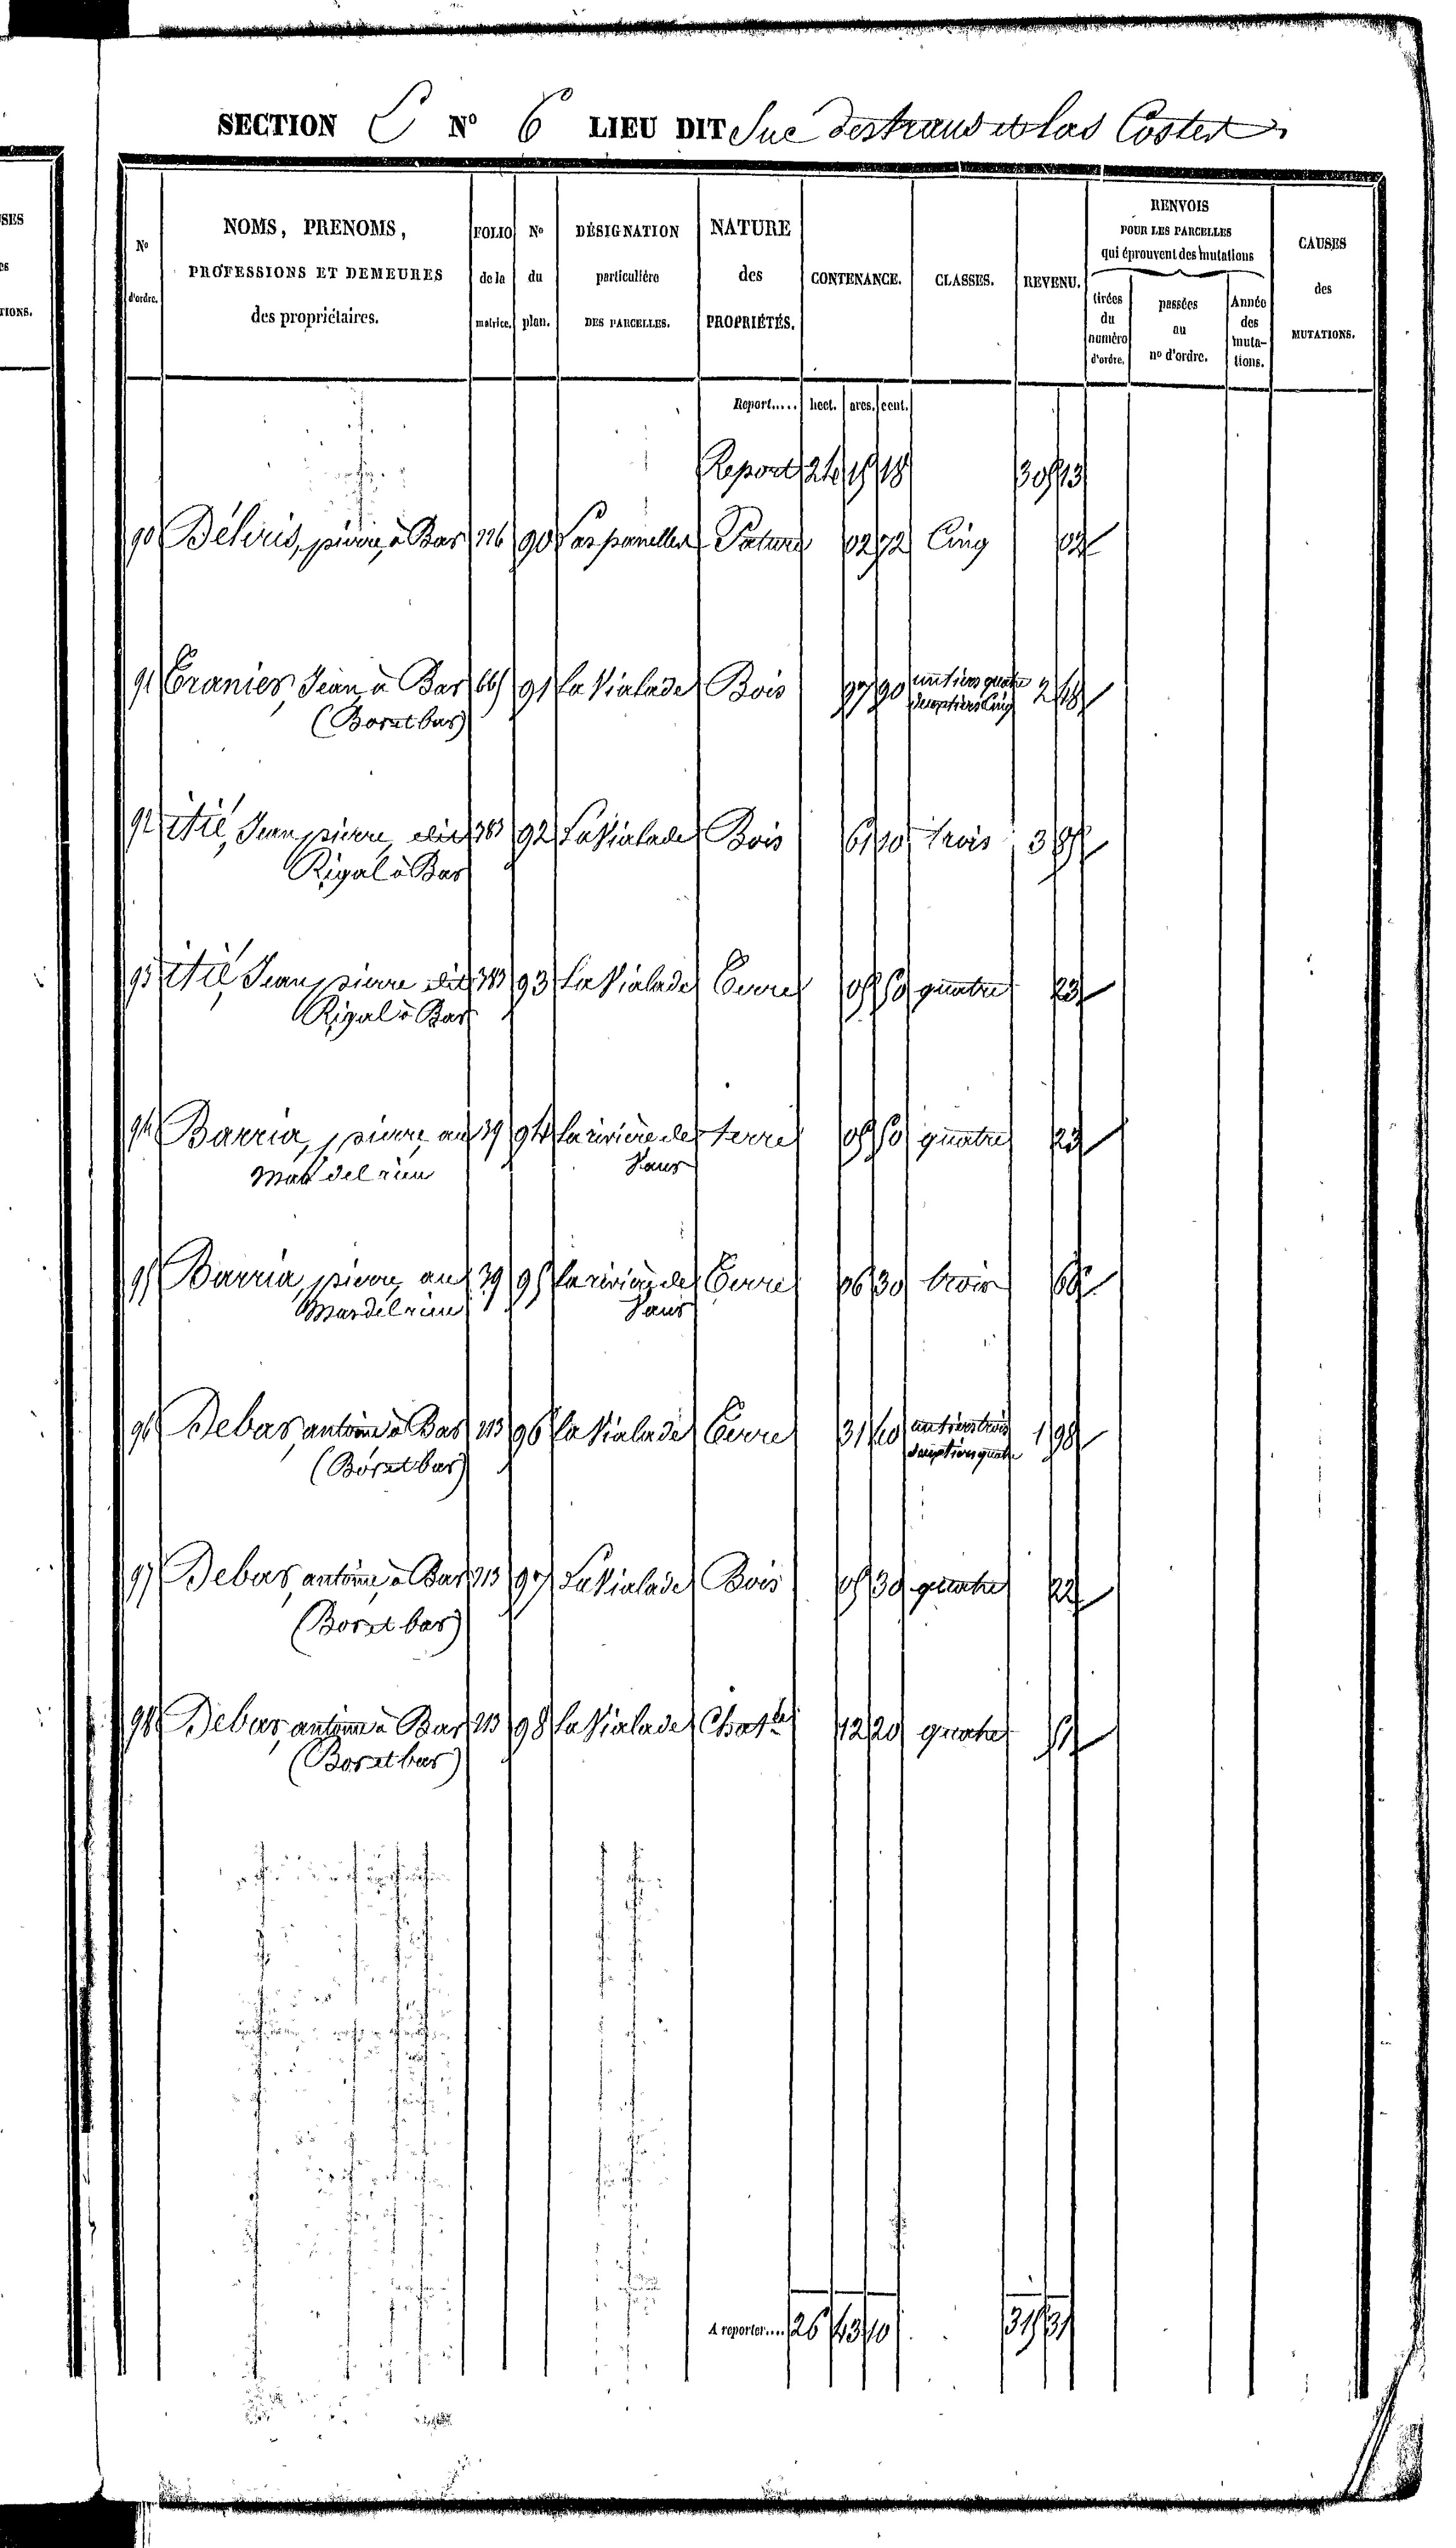 SES
es
TIONS.
SECTION C N° 6 LIEU DIT Suc destraus et las Costes
N° d'ordre.
NOMS, PRENOMS, PROFESSIONS ET DEMEURES des propriétaires.
FOLIO de la matrice.
N° du plan.
DÉSIGNATION particulière DES PARCELLES.
NATURE des PROPRIÉTÉS.
CONTENANCE.
CLASSES.
REVENU.
RENVOIS POUR LES PARCELLES qui éprouvent des mutations
tirées du numéro d'ordre.
passées au n° d'ordre.
Année des muta-tions.
CAUSES des MUTATIONS.
Report..... hect. ares. cent.
Report 24 15 18 305 13
90 Déléris, pierre, à Bar 226 90 Las parrelles Pature 02 72 Cinq 02
91 Tranier, Jean, à Bar 665 91 la Vialade Bois 97 90 un tiers quatre 2 48
(Bor et bar) deux tiers Cinq
92 itié, Jean pierre dit 383 92 La Vialade Bois 61 10 trois 3 85
Rigal à Bar
93 itié, Jean pierre dit 383 93 La Vialade Terre 05 50 quatre 23
Rigal à Bar
94 Barria, pierre, au 39 94 la rivière de terre 05 50 quatre 23
Mas del rieu Vaur
95 Barria, pierre, au 39 95 la rivière de Terre 06 30 trois 66
Mas del rieu Vaur
96 Debar, antoine à Bar 213 96 la Vialade Terre 31 40 un tiers trois 1 98
(Bor et bar) deux tiers quatre
97 Debar, antoine, à Bar 213 97 La Vialade Bois 05 30 quatre 22
(Bor et bar)
98 Debar, antoine à Bar 213 98 la Vialade Chat.le 12 20 quatre 51
(Bor et bar)
A reporter.... 26 43 10 315 31